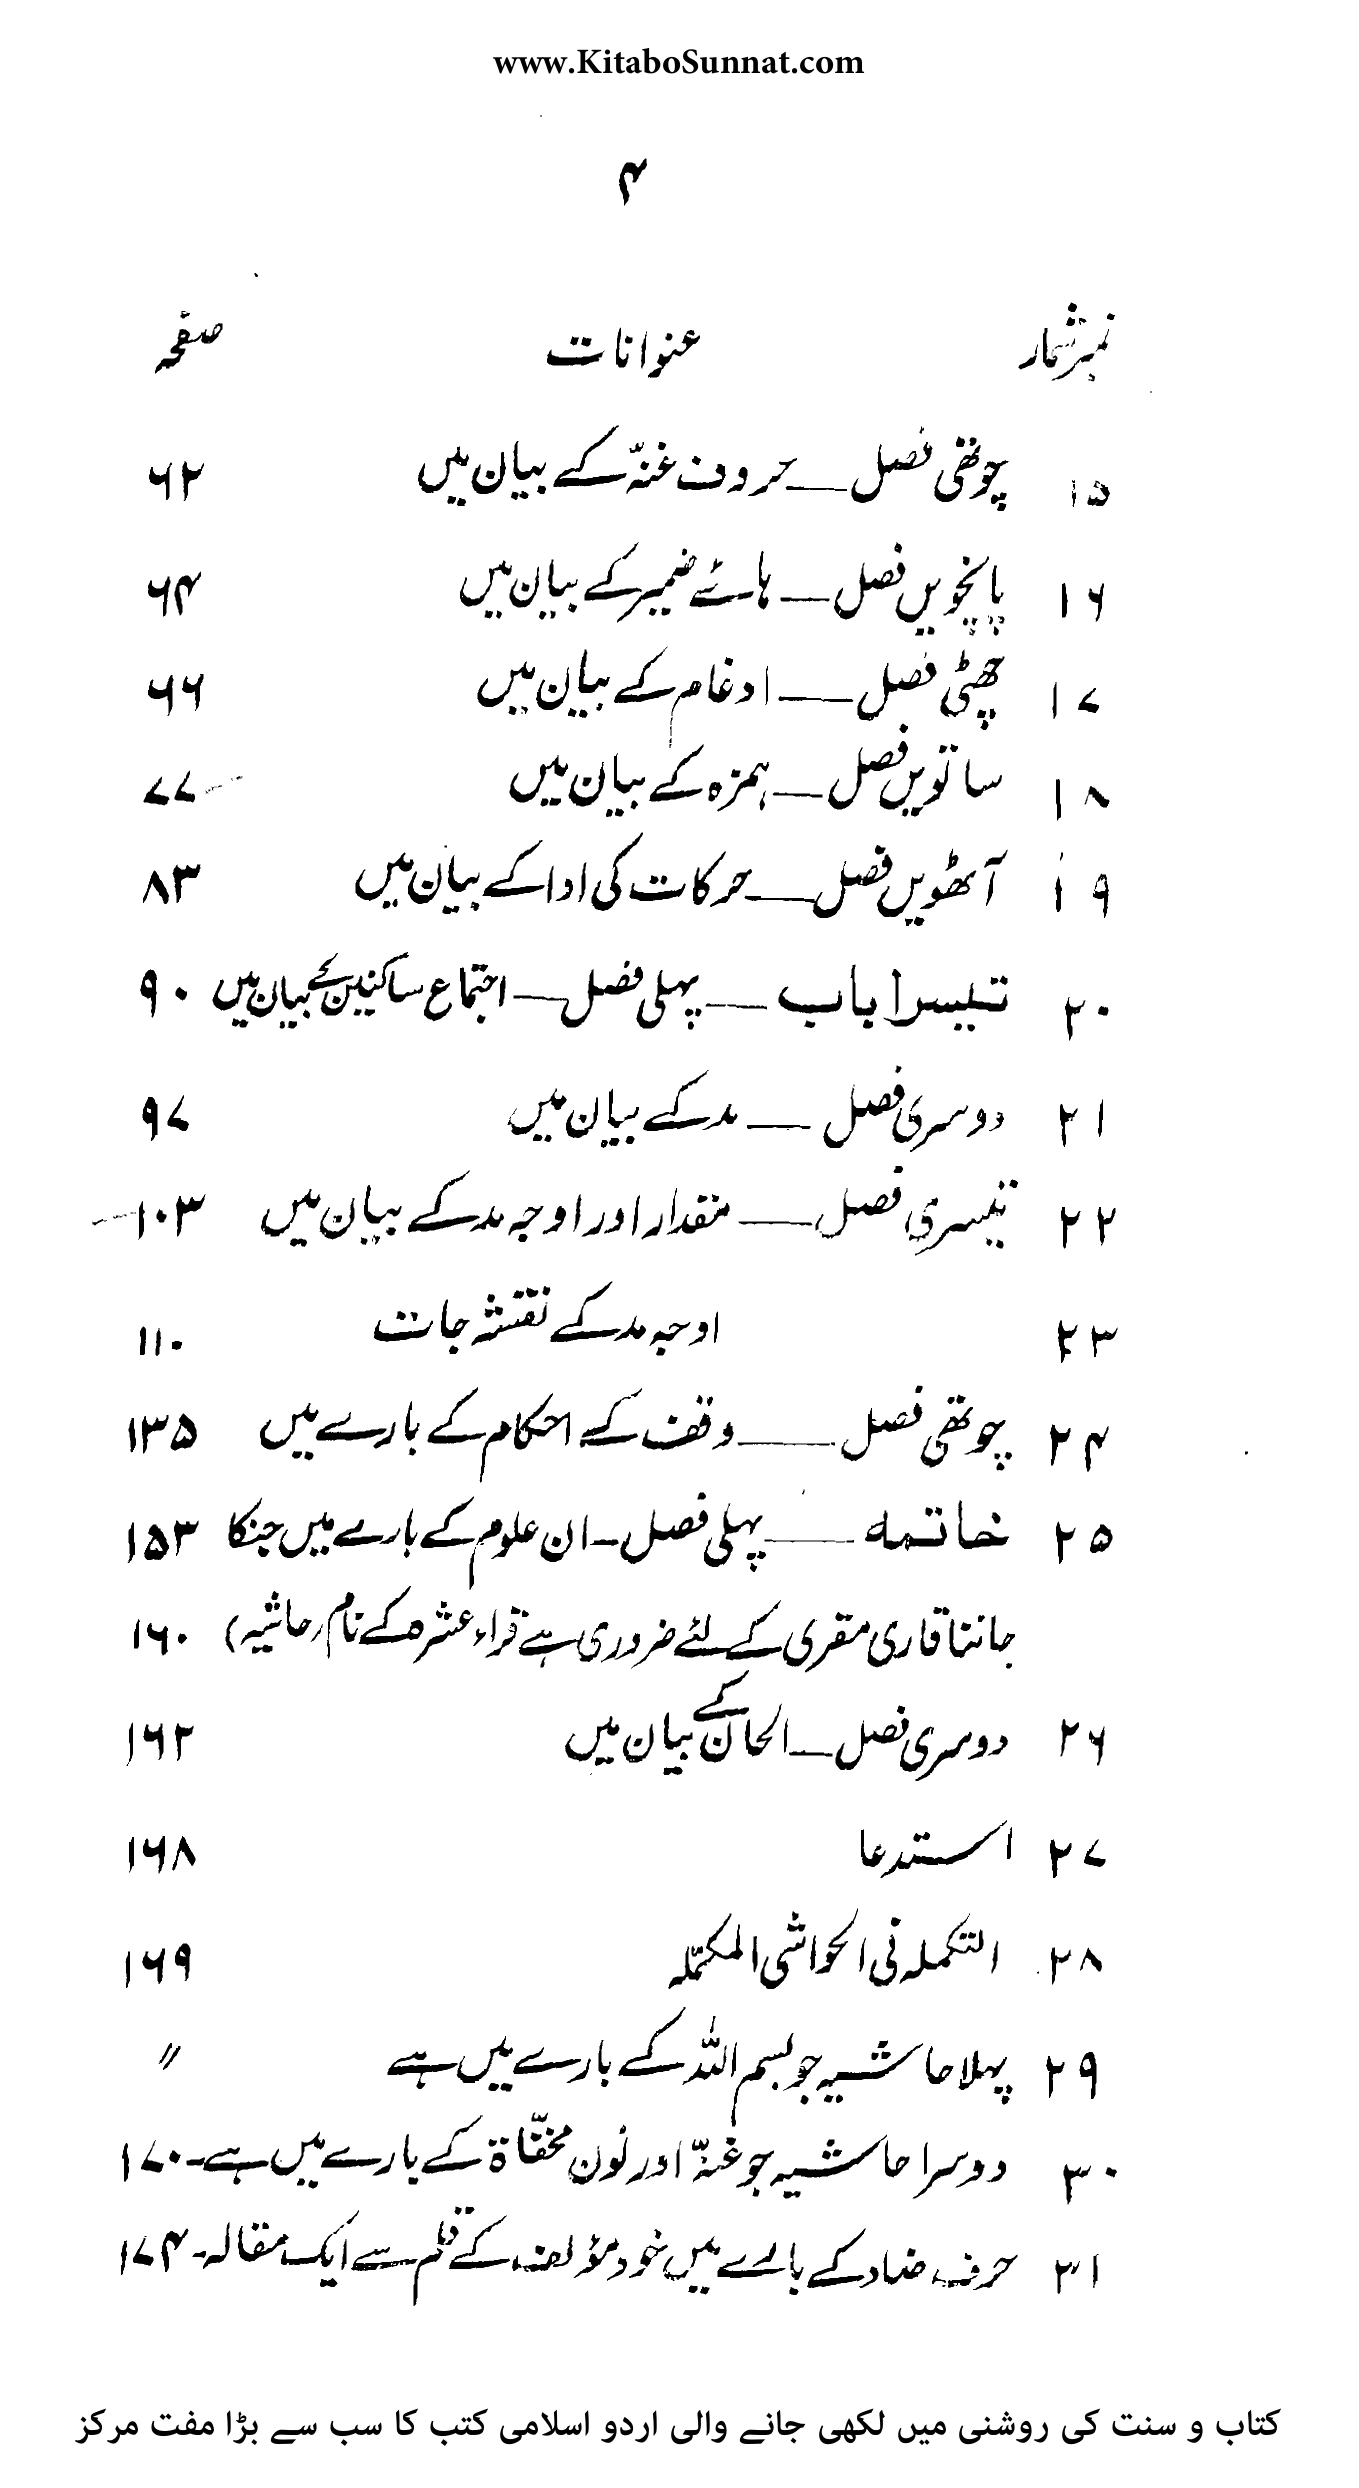 www.KitaboSunnat.com
۴
نمبر شمار عنوانات صفحہ
۱۵ چوتھی فصل — حروف غنّہ کے بیان میں ۶۲
۱۶ پانچویں فصل — ہائے ضمیر کے بیان میں ۶۴
۱۷ چھٹی فصل — ادغام کے بیان میں ۶۶
۱۸ ساتویں فصل — ہمزہ کے بیان میں ۷۷
۱۹ آٹھویں فصل — حرکات کی ادا کے بیان میں ۸۳
۲۰ تیسرا باب — پہلی فصل — اجتماع ساکنین کے بیان میں ۹۰
۲۱ دوسری فصل — مد کے بیان میں ۹۷
۲۲ تیسری فصل — مقدار اور اوجہ مد کے بیان میں ۱۰۳
۲۳ اوجہ مد کے نقشہ جات ۱۱۰
۲۴ چوتھی فصل — وقف کے احکام کے بارے میں ۱۳۵
۲۵ خاتمہ — پہلی فصل - ان علوم کے بارے میں جنکا ۱۵۳
جاننا قاری مقری کے لئے ضروری ہے قراء عشرہ کے نام (حاشیہ) ۱۶۰
۲۶ دوسری فصل — الحان کے بیان میں ۱۶۲
۲۷ استدعا ۱۶۸
۲۸ التکملہ فی الحواشی المکمّلہ ۱۶۹
۲۹ پہلا حاشیہ جو بسم اللہ کے بارے میں ہے 〃
۳۰ دوسرا حاشیہ جو غنّہ اور نون مخفّاۃ کے بارے میں ہے - ۱۷۰
۳۱ حرف ضاد کے بارے میں خود مؤلف کے قلم سے ایک مقالہ - ۱۷۴
کتاب و سنت کی روشنی میں لکھی جانے والی اردو اسلامی کتب کا سب سے بڑا مفت مرکز